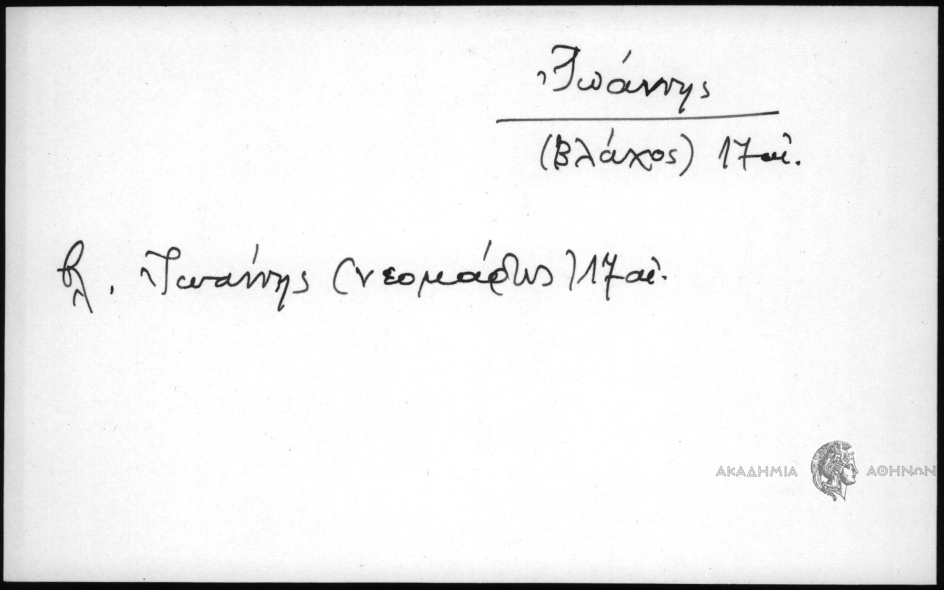 Ἰωάννης
(Βλάχος) 17 αἰ.
βλ. Ἰωάννης (νεομάρτυς) 17 αἰ.
ΑΚΑΔΗΜΙΑ ΑΘΗΝΩΝ